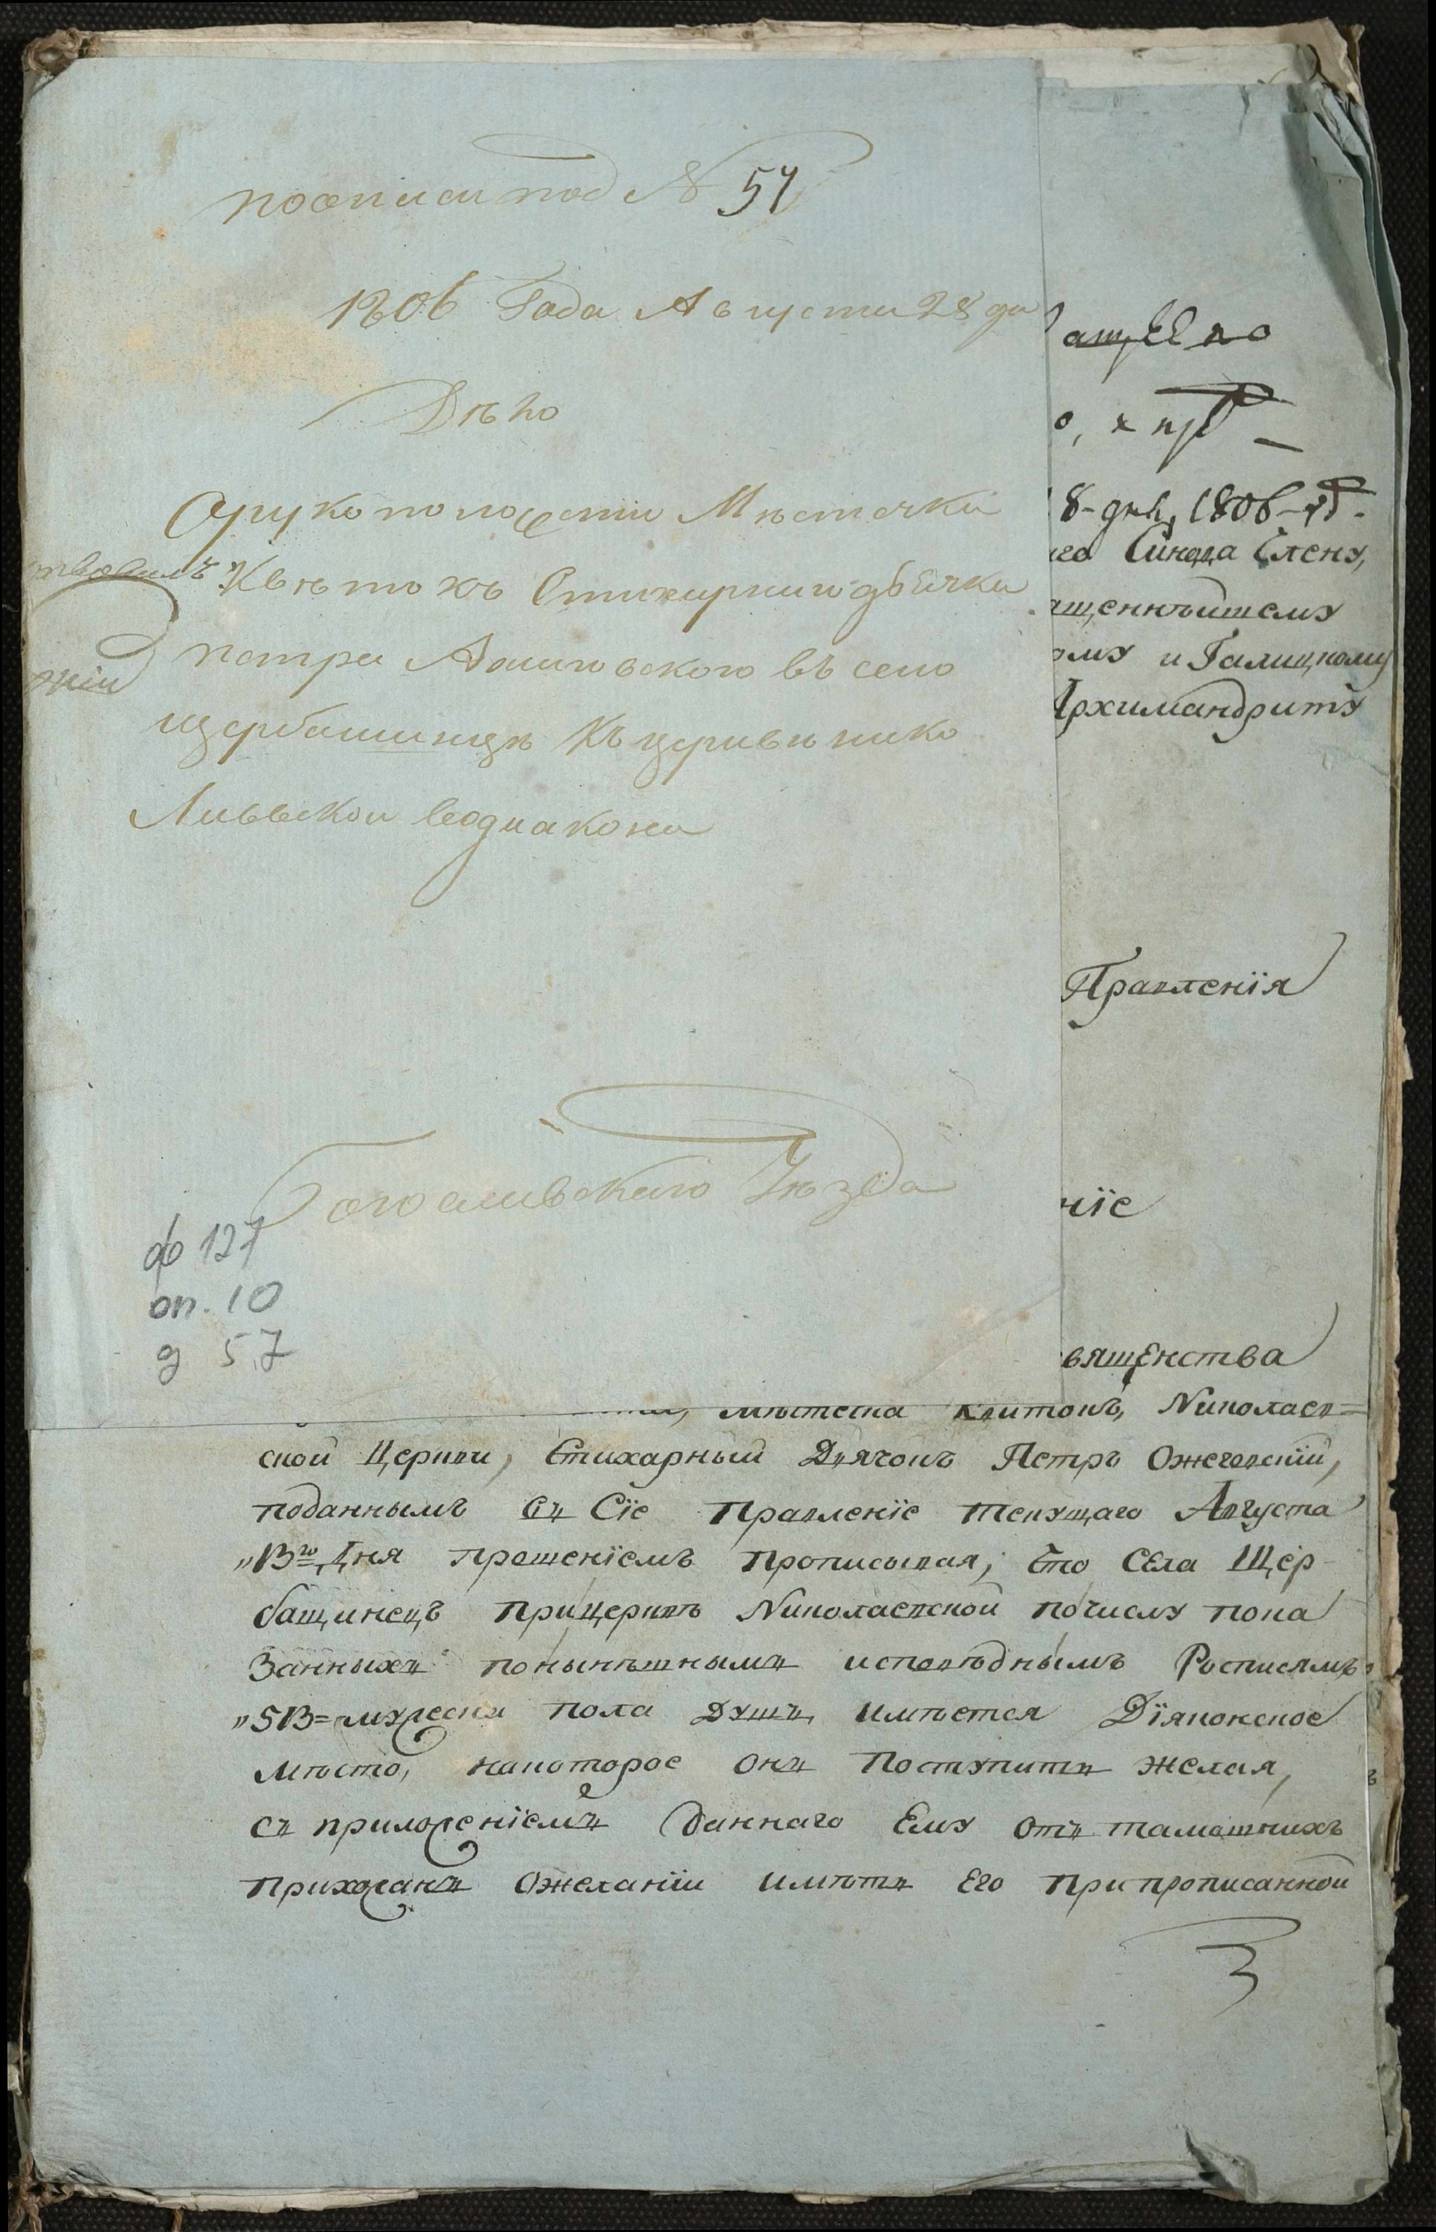 по описи под № 57
1806 Года Августа 28 дн
Дѣло
О рукоположеніи Мѣстечка
Квѣтокъ Стихарнаго дьячка
петра Ожиговского въ село
щербашинцѣ Къ церквѣ нико
Лаевской во диакона
Богославского Уѣзда
ф 127
оп. 10
д 57
8 дня, 1806
Синода Члену,
ященнѣйшему
ому и Галицкому
Архимандриту
Правленія
ніе
вященства
мѣстечка Квитокъ, Николаев=
ской Церкви, Стихарный Дьячокъ Петръ Ожеговскій,
поданнымъ въ Сіе Правленіе текущаго Августа
„13го Дня прошеніемъ прописывая, что Села Щер
башинецъ при церквѣ Николаевской по числу пока
занныхъ по нынѣшнымъ исповѣднымъ Росписямъ
„513= мужеска пола душъ, имѣется Діяконское
мѣсто, на которое онъ поступить желая,
съ приложеніемъ даннаго Ему отъ тамошнихъ
прихожанъ о желаніи имѣть Его при прописанной